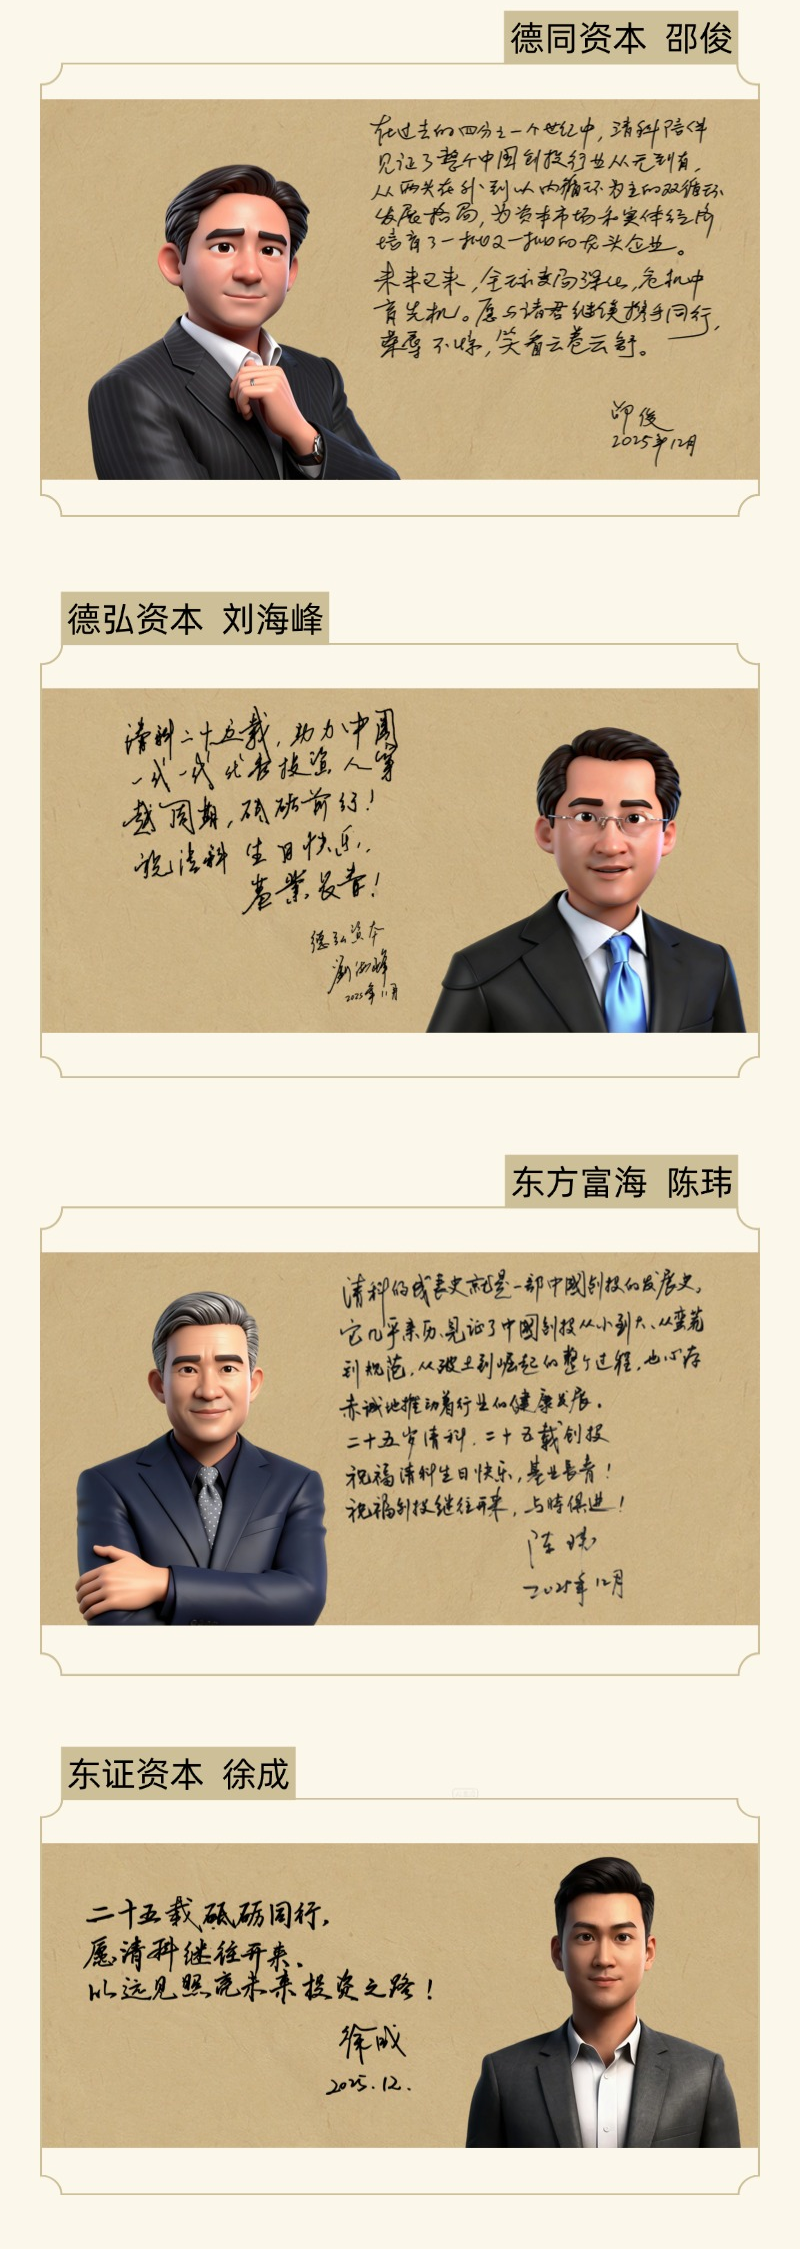 德同资本 邵俊
在过去的四分之一个世纪中，清科陪伴
见证了整个中国创投行业从无到有，
从两头在外到以内循环为主的双循环
发展格局，为资本市场和实体经济
培育了一批又一批的龙头企业。
未来已来，全球变局深化，危机中
育先机。愿与诸君继续携手同行，
荣辱不惊，笑看云卷云舒。
邵俊
2025年12月
德弘资本 刘海峰
清科二十五载，助力中国
一代一代代表投资人穿
越周期，砥砺前行！
祝清科生日快乐，
基业长青！
德弘资本
刘海峰
2025年11月
东方富海 陈玮
清科的成长史就是一部中國创投的发展史，
它几乎亲历、见证了中國创投从小到大、从蛮荒
到规范，从破土到崛起的整个过程，也心存
赤诚地推动着行业的健康发展。
二十五岁清科，二十五载创投
祝福清科生日快乐，基业长青！
祝福创投继往开来，与时俱进！
陈玮
2025年12月
东证资本 徐成
二十五载砥砺同行，
愿清科继往开来，
以远见照亮未来投资之路！
徐成
2025.12.